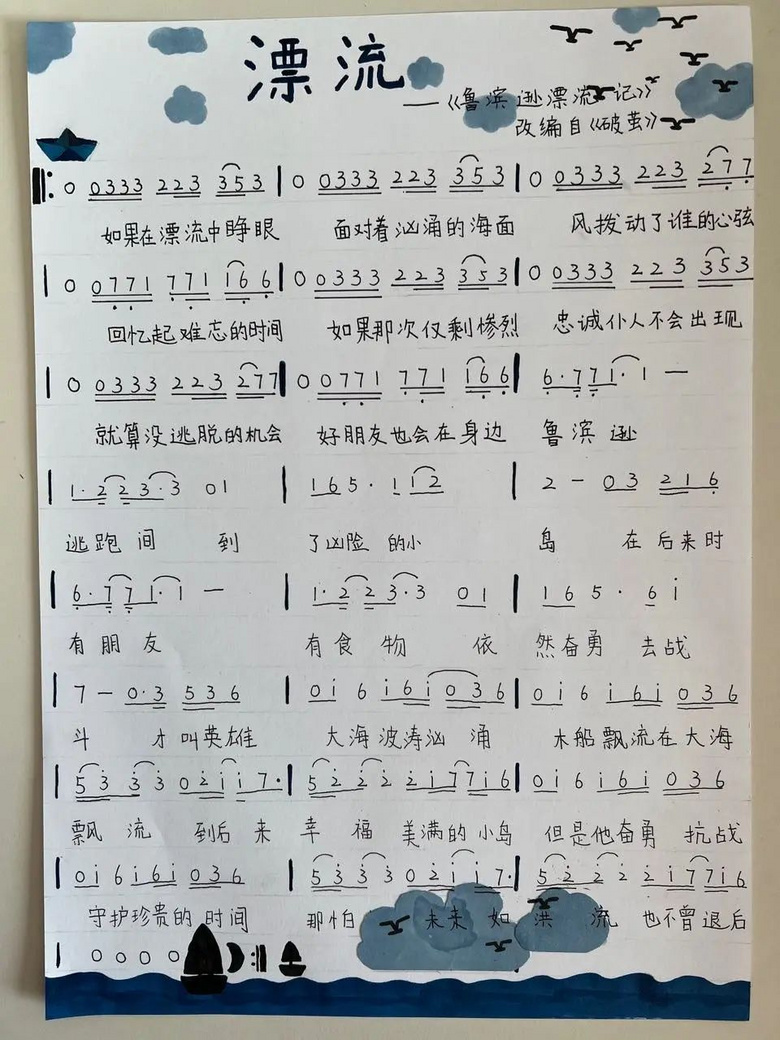 漂流
——《鲁滨逊漂流记》
改编自《破茧》
0 0333 223 353 | 0 0333 223 353 | 0 0333 223 277
如果在漂流中睁眼 面对着汹涌的海面 风拨动了谁的心弦
| 0 0771 771 166 | 0 0333 223 353 | 0 0333 223 353
回忆起难忘的时间 如果那次仅剩惨烈 忠诚仆人不会出现
| 0 0333 223 277 | 0 0771 771 166 | 6·771·1 —
就算没逃脱的机会 好朋友也会在身边 鲁滨逊
| 1·223·3 01 | 165· 112 | 2 — 03 216
逃跑间 到 了凶险 的小 岛 在后来时
| 6·771·1 — | 1·223·3 01 | 165· 6i
有朋友 有食物 依 然奋勇 去战
| 7 — 0·3 536 | 0i6 i6i036 | 0i6 i6i 036
斗 才叫英雄 大海波涛汹涌 木船飘流在大海
| 53 33 02ii7· | 52222i77i6 | 0i6i6i 036
飘流 到后来幸福 美满的小岛 但是他奋勇 抗战
| 0i6i6i 036 | 5333 02ii7· | 52222i77i6
守护珍贵的时间 那怕 未来如洪流 也不曾退后
| 0000